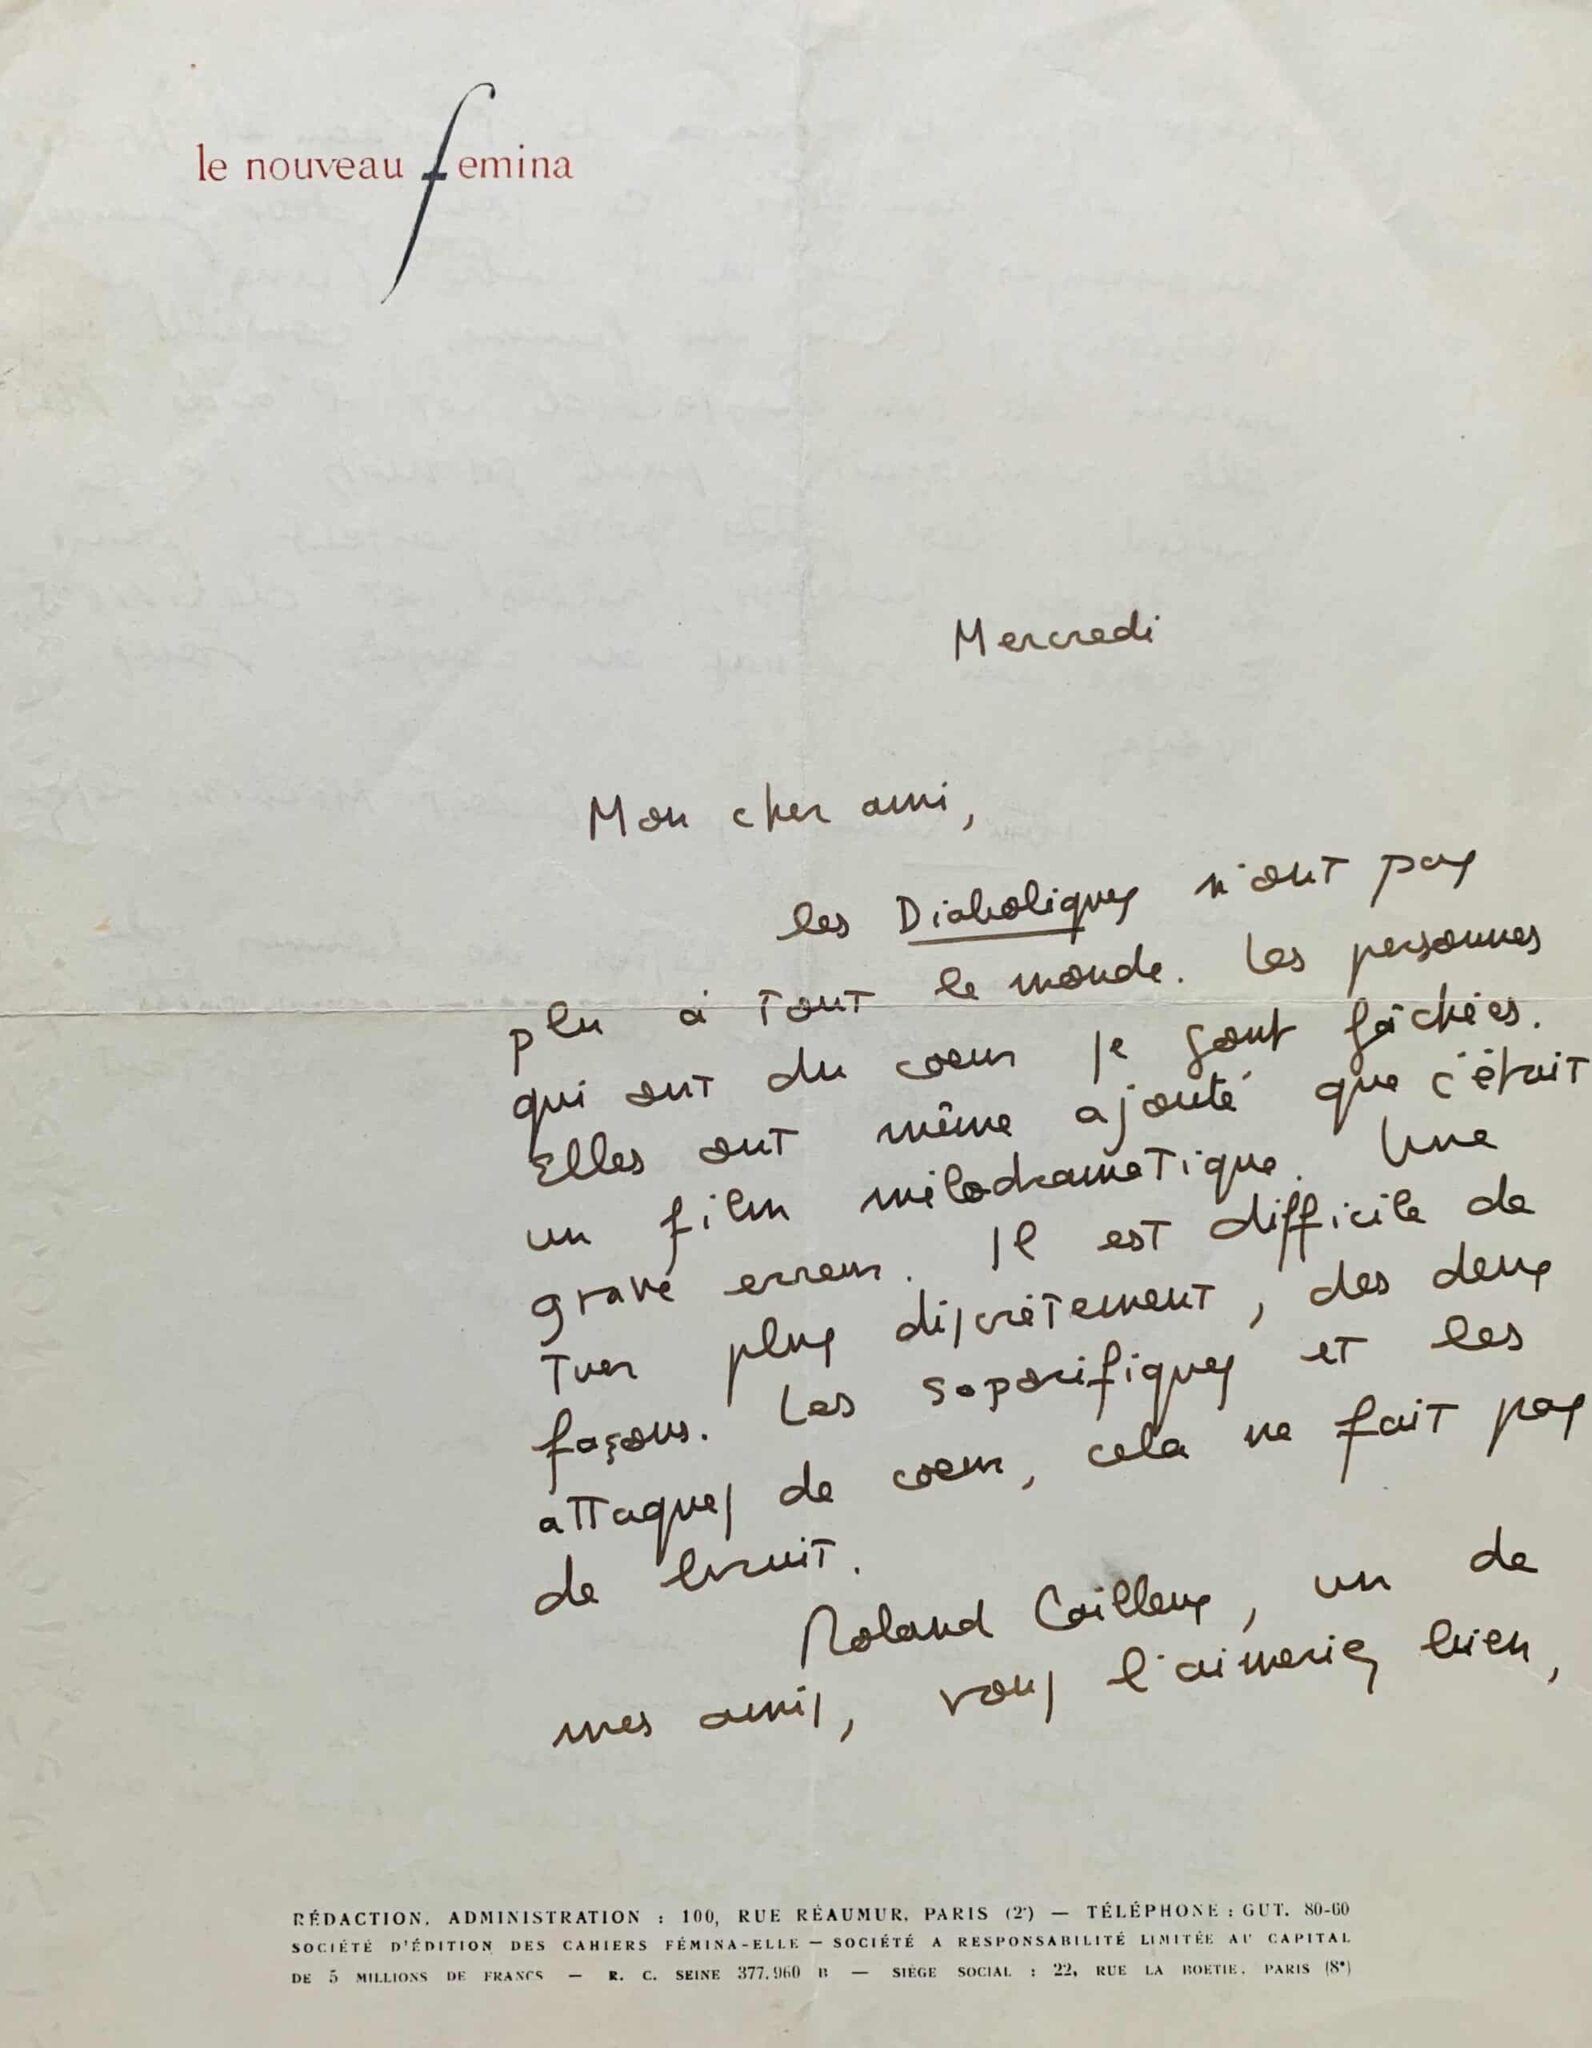 le nouveau femina
Mercredi
Mon cher ami,
les Diaboliques n'ont pas
plu à tout le monde. Les personnes
qui ont du coeur se sont fâchées.
Elles ont même ajouté que c'était
un film mélodramatique. Une
grave erreur. Il est difficile de
tuer plus discrètement, des deux
façons. Les soporifiques et les
attaques de coeur, cela ne fait pas
de bruit.
Roland Cailleux, un de
mes amis, vous l'aimeriez bien,
RÉDACTION, ADMINISTRATION : 100, RUE RÉAUMUR, PARIS (2e) — TÉLÉPHONE : GUT. 80-60
SOCIÉTÉ D'ÉDITION DES CAHIERS FÉMINA-ELLE — SOCIÉTÉ A RESPONSABILITÉ LIMITÉE AU CAPITAL
DE 5 MILLIONS DE FRANCS — R. C. SEINE 377.960 B — SIÈGE SOCIAL : 22, RUE LA BOETIE, PARIS (8e)